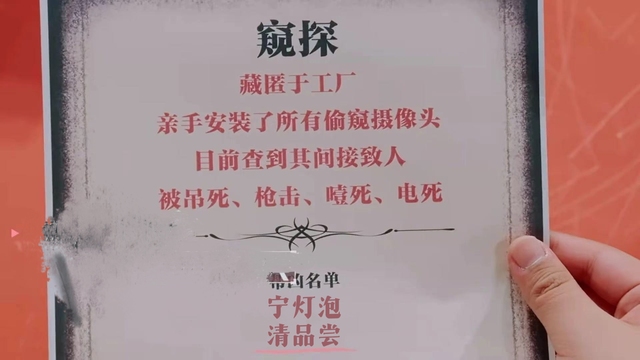 窥探
藏匿于工厂
亲手安装了所有偷窥摄像头
目前查到其间接致人
被吊死、枪击、噎死、电死
帮凶名单
宁灯泡
清品尝